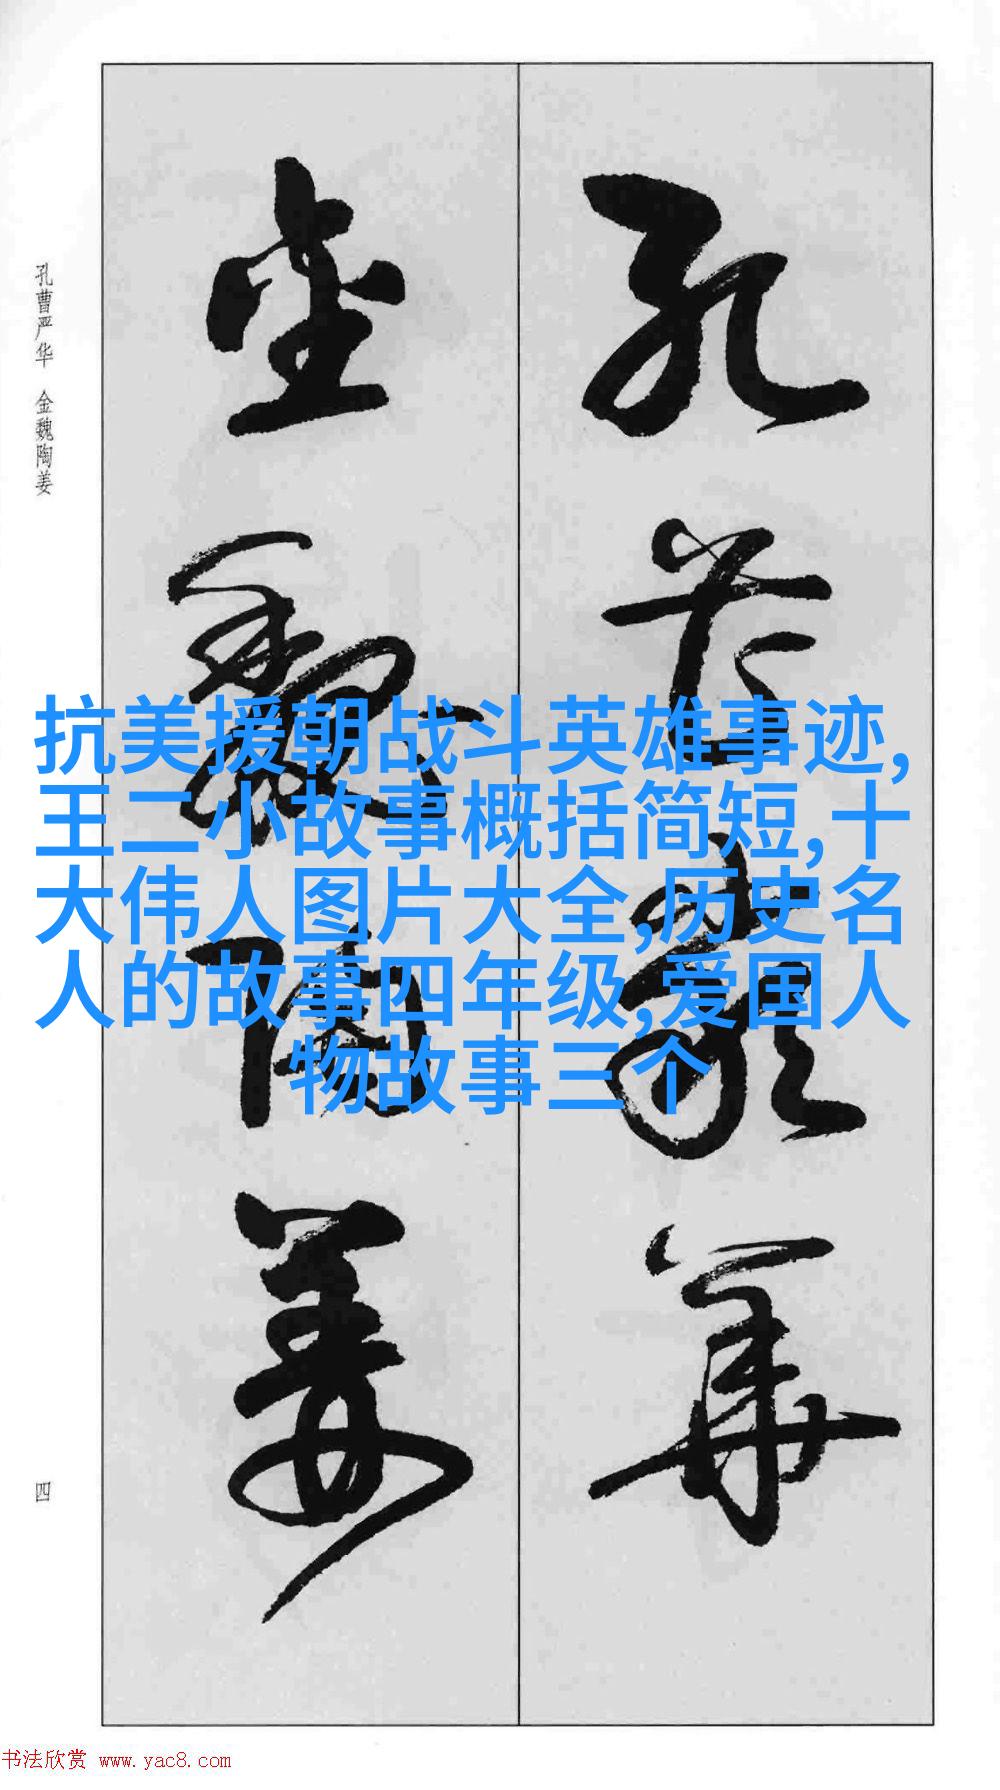 孔曹严华
金魏陶姜
孔曹严华 金魏陶姜
抗美援朝战斗英雄事迹,
王二小故事概括简短,十
大伟人图片大全,历史名
人的故事四年级,爱国人
物故事三个
四
书法欣赏 www.yac8.com